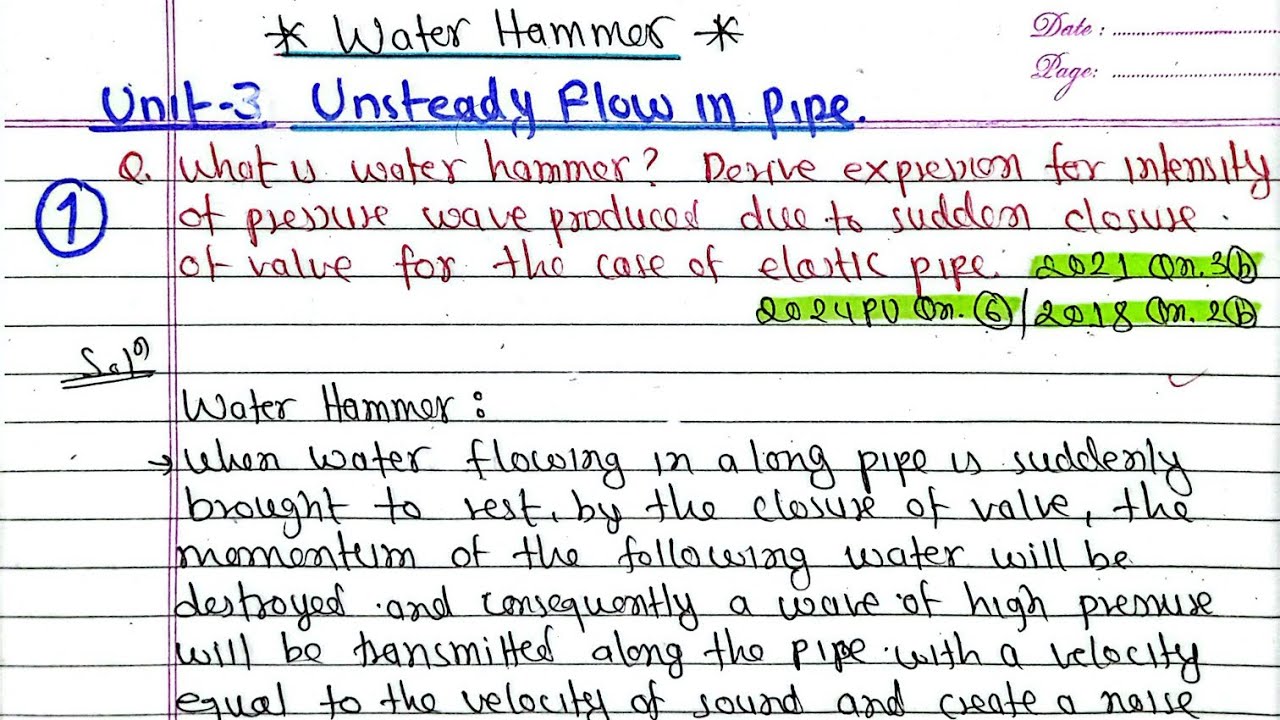 * Water Hammer *
Date :
Page:
Unit-3 Unsteady Flow in pipe.
Q. What is water hammer? Derive expression for intensity
① of pressure wave produced due to suddem closure.
of value for the case of elastic pipe. 2021 Qn. 3ⓑ
2024PU Qn. ⑥ / 2018 Qn. 2ⓑ
Solⁿ
Water Hammer :
→ When water flowing in a long pipe is suddenly
brought to rest, by the closure of valve, the
momentum of the following water will be
destroyed and consequently a wave of high pressure
will be transmitted along the pipe with a velocity
equal to the velocity of sound and create a noise